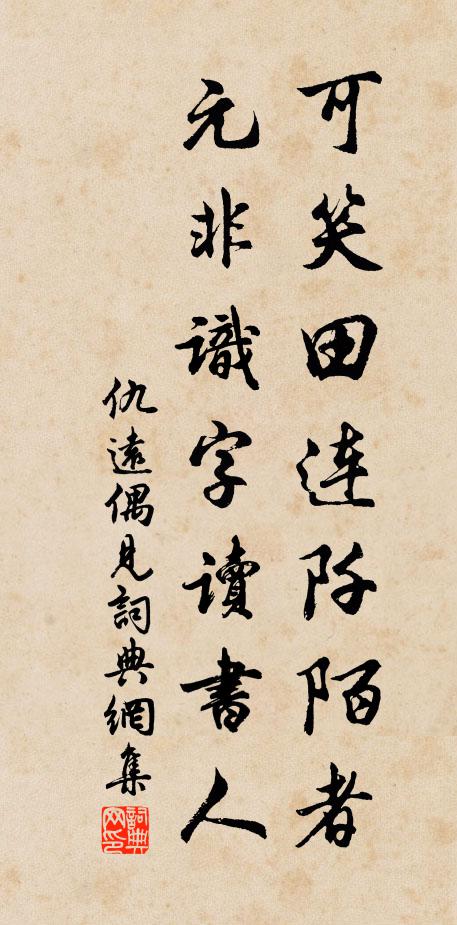 可笑田連阡陌者
元非識字讀書人
仇遠偶見詞典網集
詞典網印